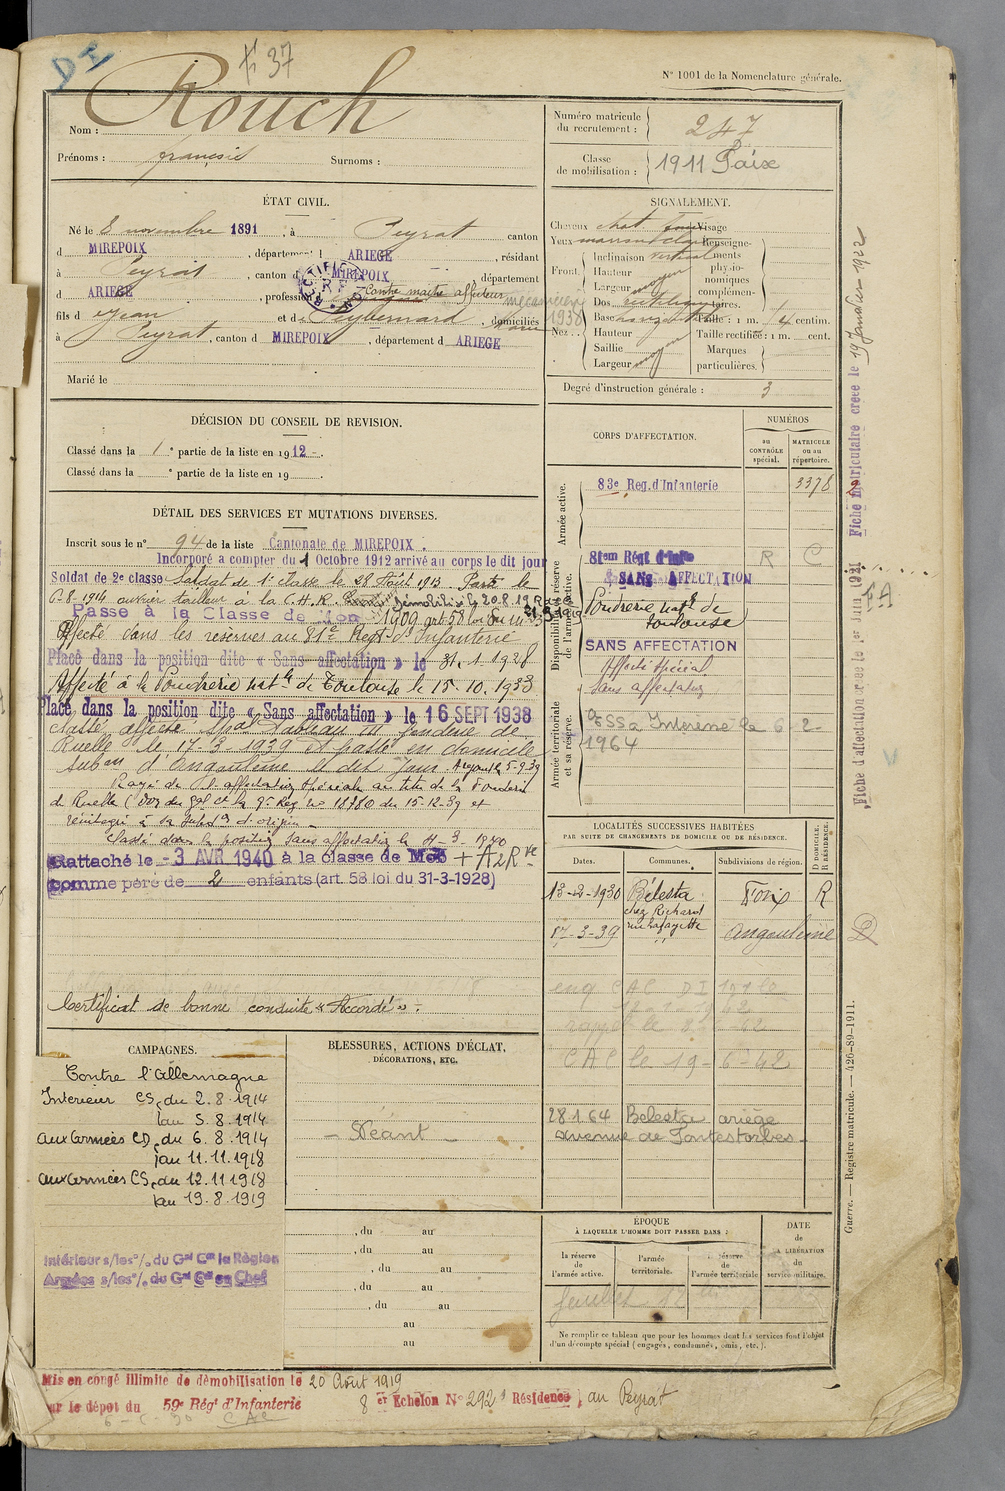 DI
37
N° 1001 de la Nomenclature générale.
Nom : Rouch
Prénoms : françois Surnoms :
Numéro matricule du recrutement : 247
Classe de mobilisation : 1911 Paix
ÉTAT CIVIL.
Né le 8 novembre 1891, à Peyrat canton
d MIREPOIX, département d ARIEGE, résidant
à Peyrat, canton d MIREPOIX département
d ARIEGE, profession Contre maitre affuteur
mécanicien
1938
fils d Jean et de Peybernard, domiciliés
à Peyrat, canton d MIREPOIX, département d ARIEGE
Marié le
SIGNALEMENT.
Cheveux chat foncé Visage
Yeux marron clair Renseignements physionomiques complémentaires.
Front. Inclinaison vertical
Hauteur moyen
Largeur
Nez . . Dos rectiligne
Base horizontale
Hauteur
Saillie moyen
Largeur
Taille : 1 m. 74 centim.
Taille rectifiée : 1 m. cent.
Marques particulières.
Degré d'instruction générale : 3
DÉCISION DU CONSEIL DE REVISION.
Classé dans la 1e partie de la liste en 1912 -.
Classé dans la e partie de la liste en 19 .
DÉTAIL DES SERVICES ET MUTATIONS DIVERSES.
Inscrit sous le n° 94 de la liste Cantonale de MIREPOIX .
Incorporé à compter du 1 Octobre 1912 arrivé au corps le dit jour
Soldat de 2e classe Soldat de 1e classe le 28 Août 1913. Parti le
6-8-1914 ouvrier tailleur à la C.H.R. démobilisé le 20.8.19
Passé à la Classe de 1909 art 58 loi du 31.3
Affecté dans les réserves au 81e Regt d'Infanterie
Placé dans la position dite « Sans affectation » le 31.1.1928
Affecté à la Poudrerie natle de Toulouse le 15.10.1933
Placé dans la position dite « Sans affectation » le 16 SEPT 1938
Classé affecté Spal Tableau III fonderie de
Ruelle le 17-3-1939 et passé en domicile
subon d'Angoulême le dit jour. Angoulê 5-9-39
Rayé de l'affectation Spéciale au titre de la Fonderie
de Ruelle (Don du Gal ct la 9e Reg no 18780 du 15-12-39 et
réintegré à sa Subdon d'origine
Placé dans la position Sans affectation le 4-3-1940
Rattaché le - 3 AVR 1940 à la classe de Mob + A2Rve
comme père de 2 enfants (art. 58 loi du 31-3-1928)
Certificat de bonne conduite « Accordé » .
CORPS D'AFFECTATION.
NUMÉROS
au CONTRÔLE spécial.
MATRICULE ou au répertoire.
Armée active.
83e Reg.d'Infanterie 3378
Disponibilité et réserve de l'armée active.
81em Régt d'Infie R C
SANS AFFECTATION
Poudrerie natle de
Toulouse
SANS AFFECTATION
Affecté Spécial
Armée territoriale et sa réserve.
Sans affectation
ESSa Interine le 6-2-
1964
LOCALITÉS SUCCESSIVES HABITÉES
PAR SUITE DE CHANGEMENTS DE DOMICILE OU DE RÉSIDENCE.
Dates. Communes. Subdivisions de région. D DOMICILE. R RÉSIDENCE.
13-2-1930 Bélesta Foix R
chez Richard
17-3-39 rue Lafayette Angoulême D
CAC le 19-6-42
28.1.64 Belesta ariège
avenue de Fontestorbes -
CAMPAGNES.
Contre l'Allemagne
Intérieur CS, du 2.8.1914
au 5.8.1914
aux Armées CD, du 6.8.1914
au 11.11.1918
aux Armées CS, du 12.11.1918
au 19.8.1919
Intérieur s/les°/. du Gal Ct la Région
Armées s/les°/. du Gal Ct en Chef
BLESSURES, ACTIONS D'ÉCLAT,
DÉCORATIONS, ETC.
- Néant -
, du au
, du au
, du au
, du au
, du au
au
au
ÉPOQUE
À LAQUELLE L'HOMME DOIT PASSER DANS :
la réserve de l'armée active.
l'armée territoriale.
la réserve de l'armée territoriale
DATE de LA LIBÉRATION du service militaire.
Ne remplir ce tableau que pour les hommes dont les services font l'objet
d'un décompte spécial (engagés, condamnés, omis, etc.).
Mis en congé illimité de démobilisation le 20 Août 1919
par le dépot du 59e Régt d'Infanterie 8 er Echelon N° 292 Résidence au Peyrat
Fiche matriculaire créée le 19 Janvier 1922
Fiche d'affectation créée le 1er Juin 1921
FA
Guerre. — Registre matricule. — 426-89-1911.